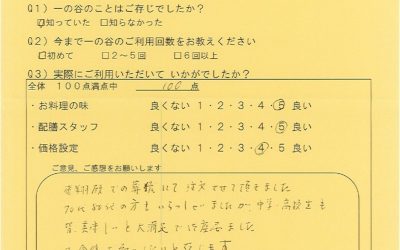 Q1）一の谷のことはご存じでしたか？
☑知っていた　□知らなかった
Q2）今まで一の谷のご利用回数をお教えください
☑初めて　□2～5回　□6回以上
Q3）実際にご利用いただいて いかがでしたか？
全体　100点満点中　100　点
・お料理の味　良くない 1・2・3・4・5 良い
・配膳スタッフ　良くない 1・2・3・4・5 良い
・価格設定　良くない 1・2・3・4・5 良い
ご意見、ご感想をお願いします
での葬儀にて 注文させて頂きました
70代 の方も いらっしゃいましたが 中学・高校生も
皆 美味しいと大満足で ました